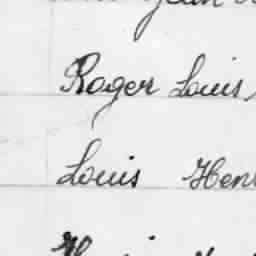 Jean
Roger Louis
Louis Hen